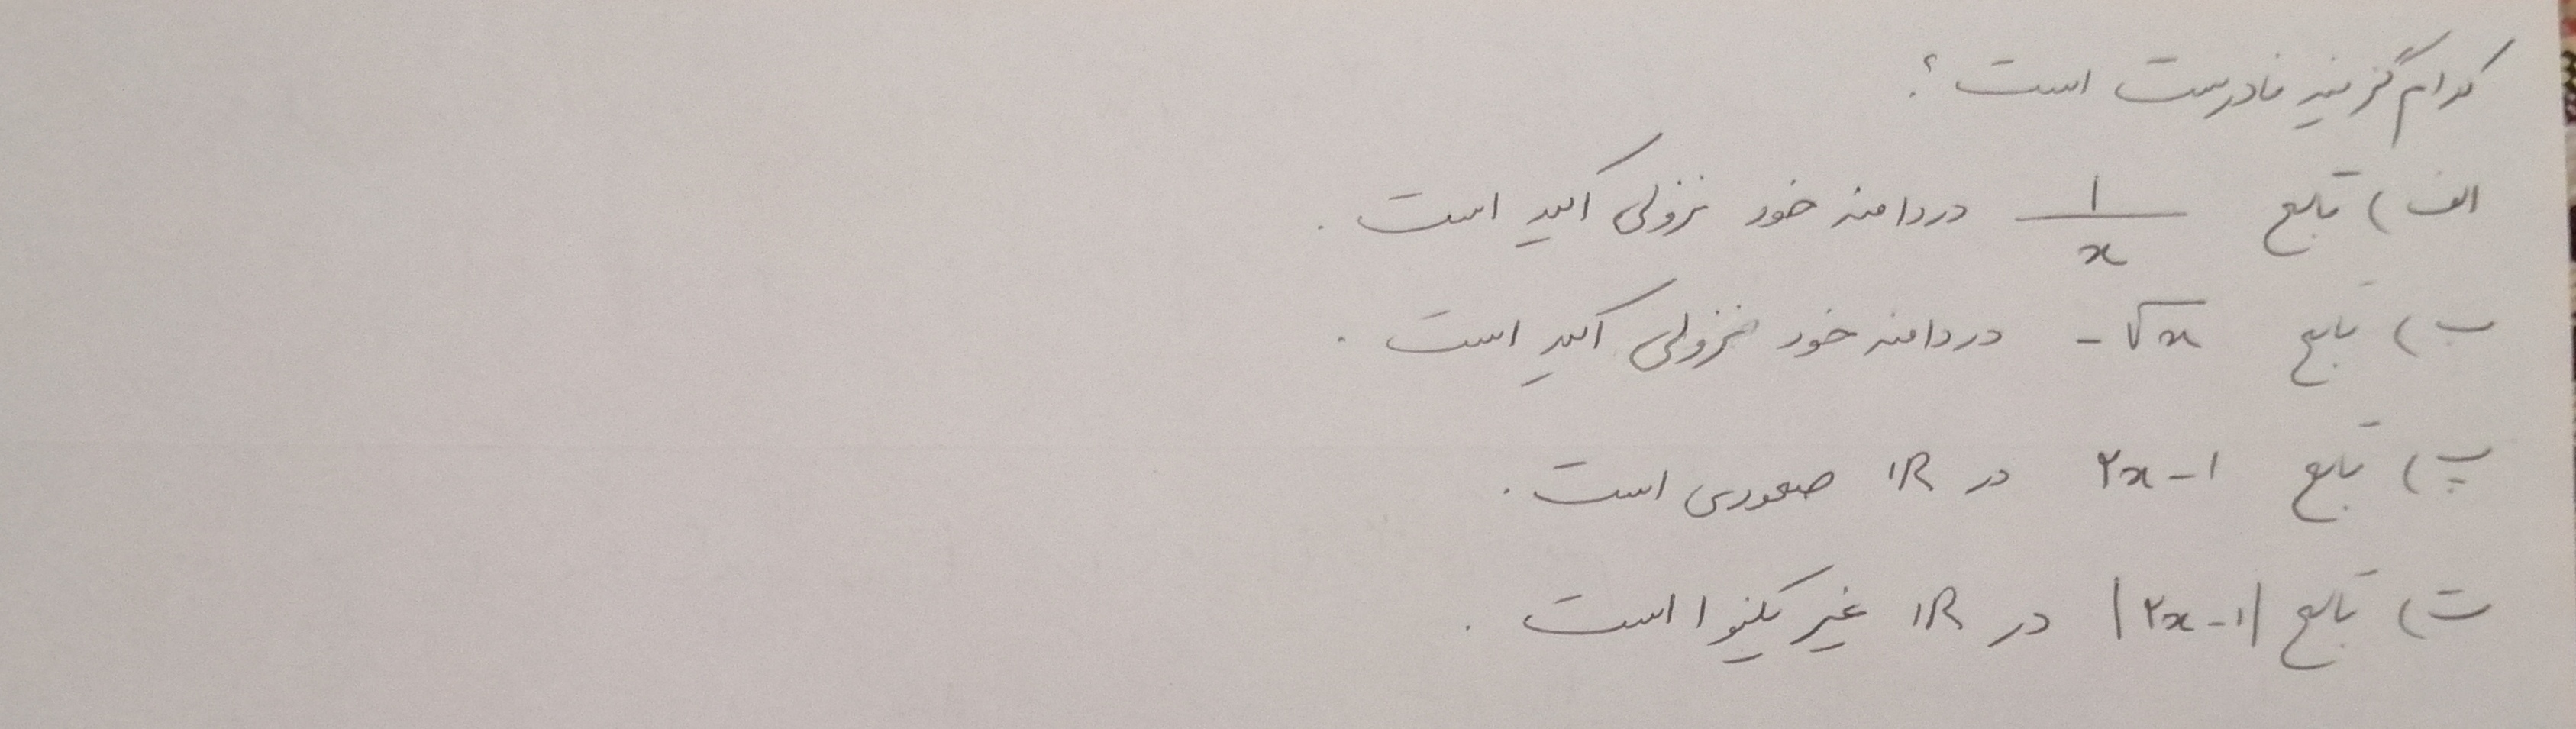 کدام گزینه نادرست است؟
الف) تابع 1/x در دامنه خود نزولی اکید است.
ب) تابع -√x در دامنه خود نزولی اکید است.
پ) تابع ۲x-۱ در IR صعودی است.
ت) تابع |۲x-۱| در IR غیر یکنوا است.